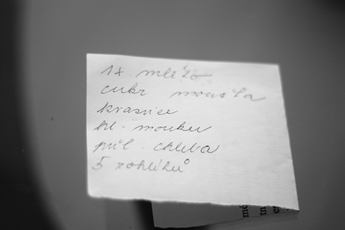 1x mléko
cukr máslo
krasnice
hl. mouku
půl chleba
5 rohlíků